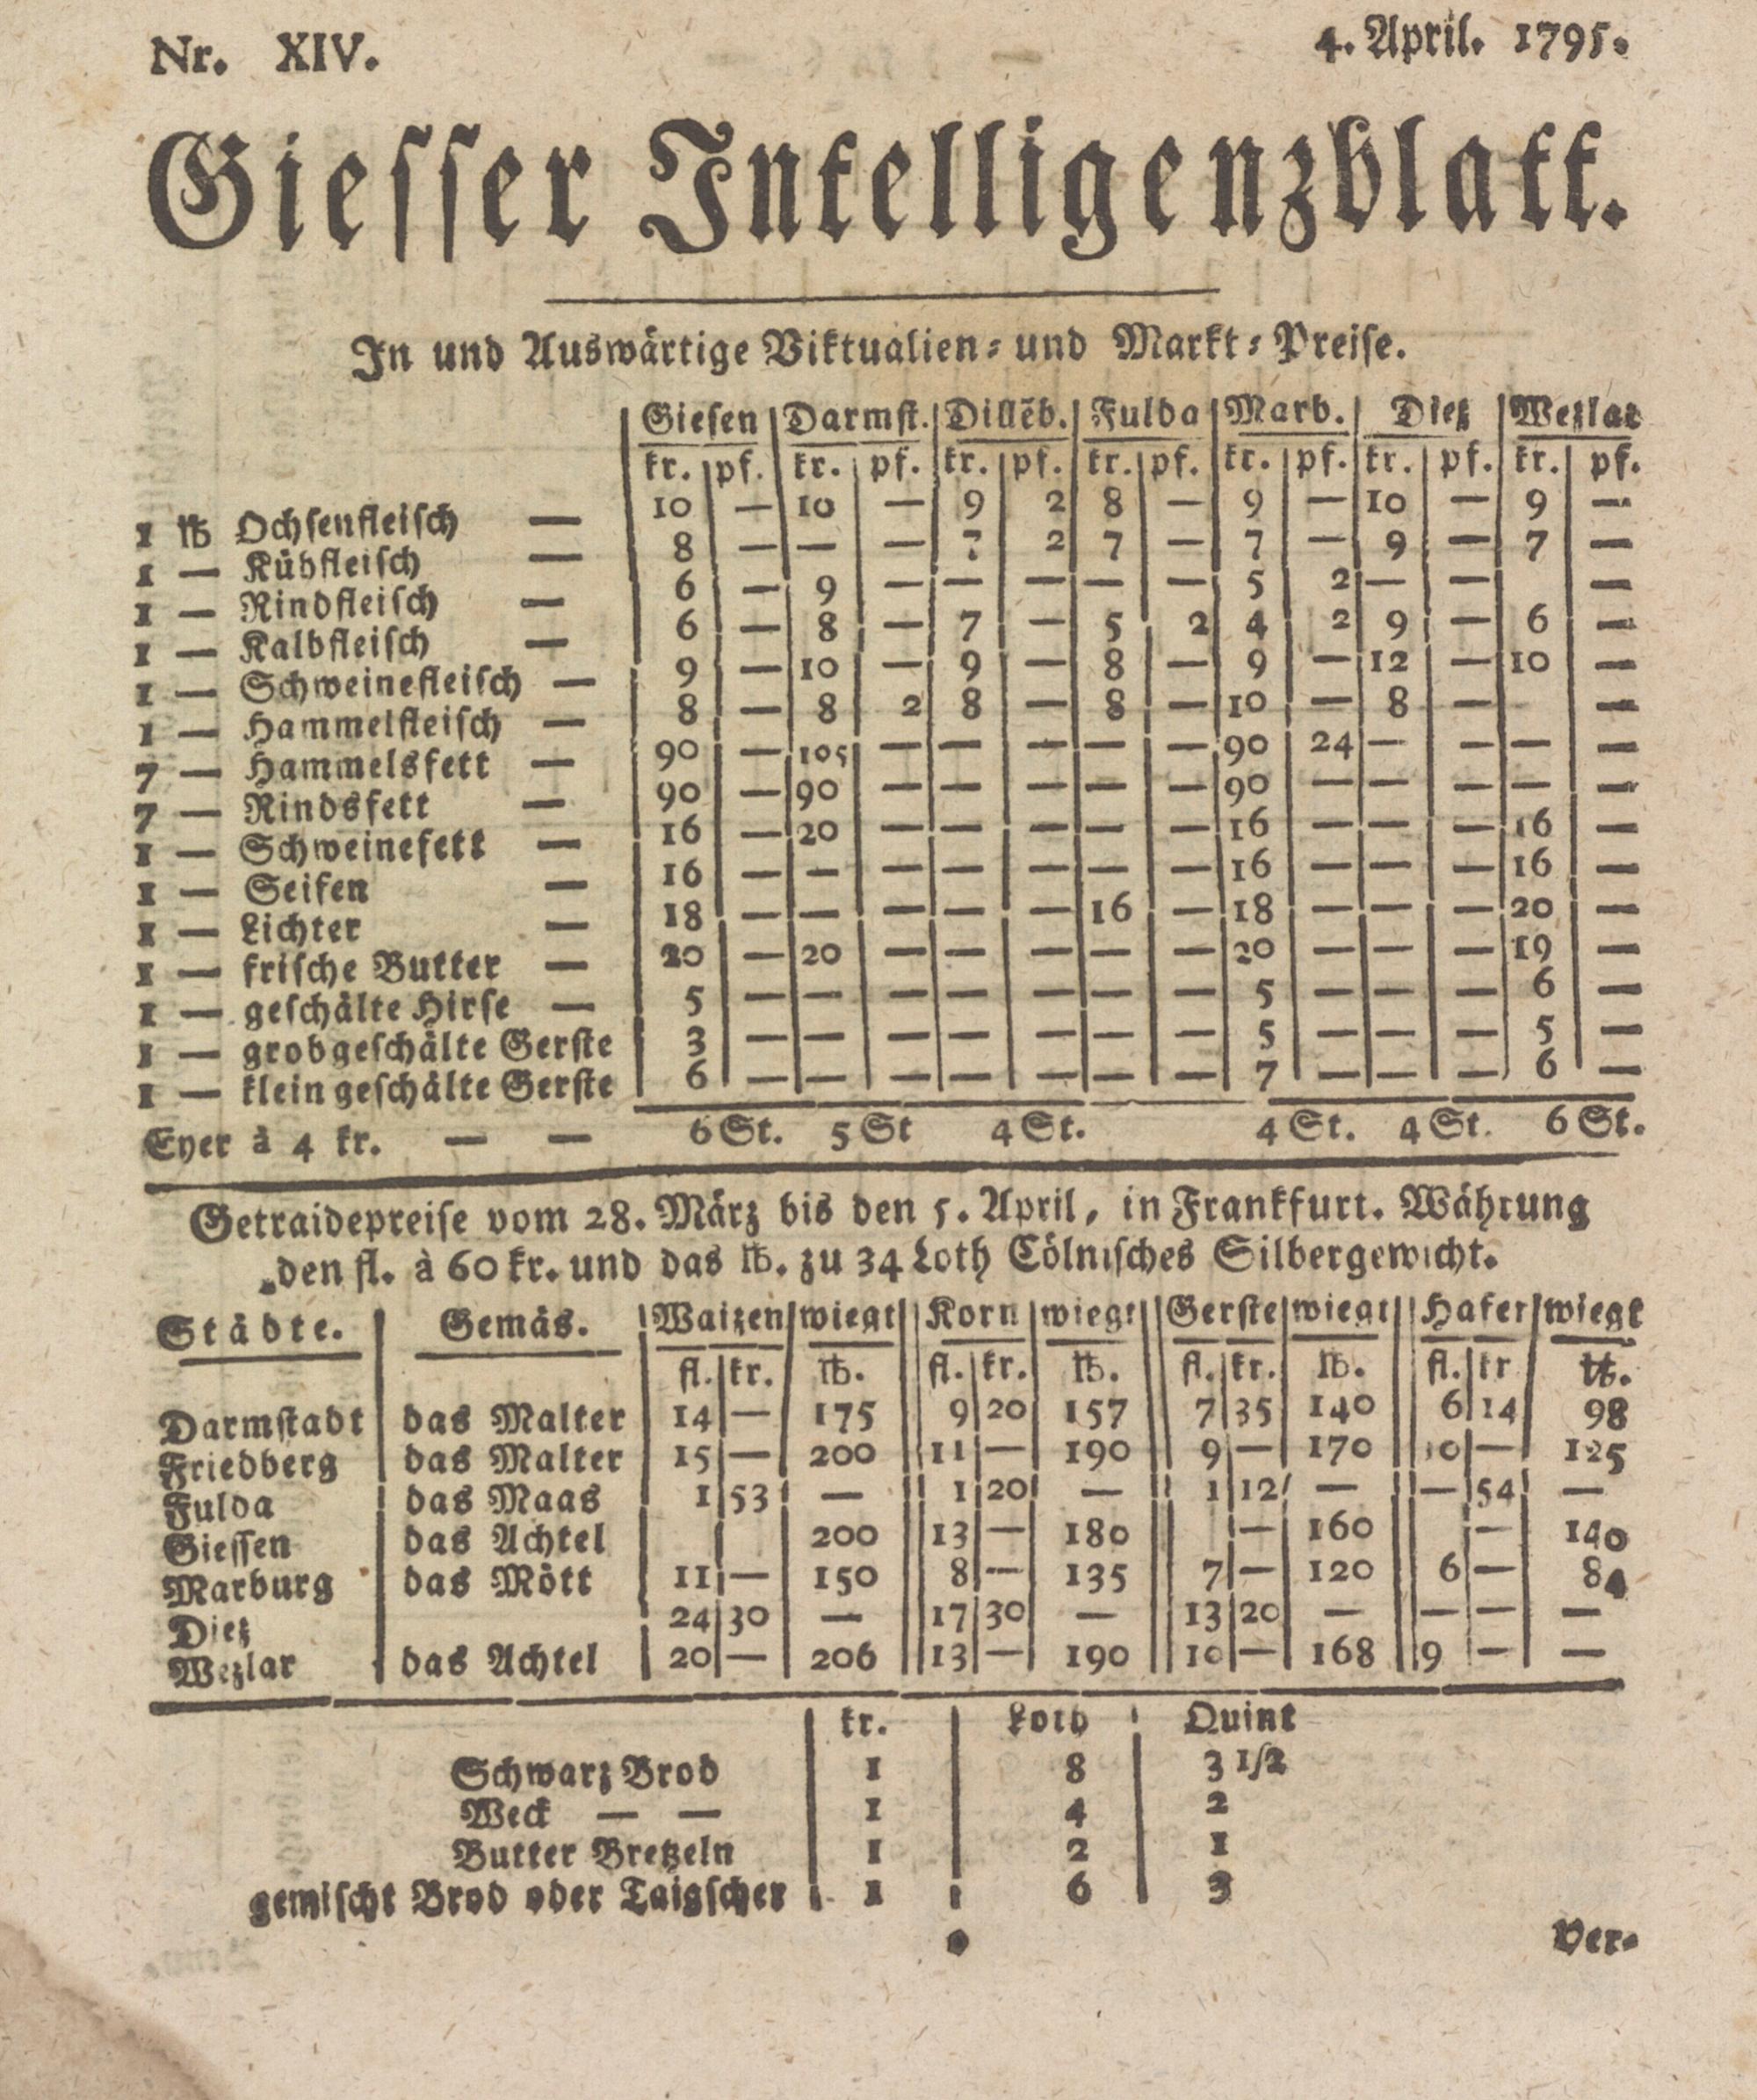 Nr. XIV. 4. April. 1795.
Giesser Intelligenzblatt.
In und Auswärtige Viktualien- und Markt-Preise.
Giesen Darmst. Dillēb. Fulda Marb. Dietz Wetzlar
kr. pf. kr. pf. kr. pf. kr. pf. kr. pf. kr. pf. kr. pf.
1 ℔ Ochsenfleisch — 10 — 10 — 9 2 8 — 9 — 10 — 9 —
1 — Kühfleisch — 8 — — — 7 2 7 — 7 — 9 — 7 —
1 — Rindfleisch — 6 — 9 — — — — — 5 2 — — —
1 — Kalbfleisch — 6 — 8 — 7 — 5 2 4 2 9 — 6 —
1 — Schweinefleisch — 9 — 10 — 9 — 8 — 9 — 12 — 10 —
1 — Hammelfleisch — 8 — 8 2 8 — 8 — 10 — 8 — —
7 — Hammelsfett — 90 — 105 — — — — — 90 24 — — — —
7 — Rindsfett — 90 — 90 — — — — — 90 — — — — —
1 — Schweinefett — 16 — 20 — — — — — 16 — — — 16 —
1 — Seifen — 16 — — — — — — — 16 — — — 16 —
1 — Lichter — 18 — — — — — 16 — 18 — — — 20 —
1 — frische Butter — 20 — 20 — — — — — 20 — — — 19 —
1 — geschälte Hirse — 5 — — — — — — — 5 — — — 6 —
1 — grobgeschälte Gerste 3 — — — — — — — 5 — — — 5 —
1 — klein geschälte Gerste 6 — — — — — — — 7 — — — 6 —
Eyer à 4 kr. — — 6 St. 5 St 4 St. 4 St. 4 St. 6 St.
Getraidepreise vom 28. März bis den 5. April, in Frankfurt. Währung
den fl. à 60 kr. und das ℔. zu 34 Loth Cölnisches Silbergewicht.
Städte. Gemäs. Waizen wiegt Korn wiegt Gerste wiegt Hafer wiegt
fl. kr. ℔. fl. kr. ℔. fl. kr. ℔. fl. kr ℔.
Darmstadt das Malter 14 — 175 9 20 157 7 35 140 6 14 98
Friedberg das Malter 15 — 200 11 — 190 9 — 170 10 — 125
Fulda das Maas 1 53 — 1 20 — 1 12 — — 54 —
Giessen das Achtel 200 13 — 180 — 160 — 140
Marburg das Mött 11 — 150 8 — 135 7 — 120 6 — 84
Dietz 24 30 — 17 30 — 13 20 — — — —
Wetzlar das Achtel 20 — 206 13 — 190 10 — 168 9 — —
kr. Loth Quint
Schwarz Brod 1 8 3 1/2
Weck — — 1 4 2
Butter Bretzeln 1 2 1
gemischt Brod oder Taigscher 1 6 3
Ver-